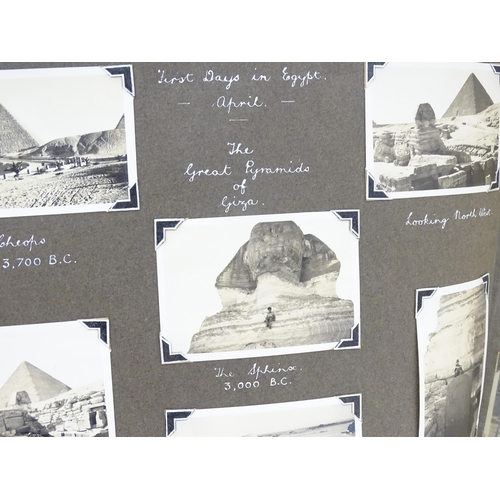 First Days in Egypt.
— April. —
The
Great Pyramids
of
Giza.
Cheops
3,700 B.C.
Looking North West
The Sphinx.
3,000 B.C.